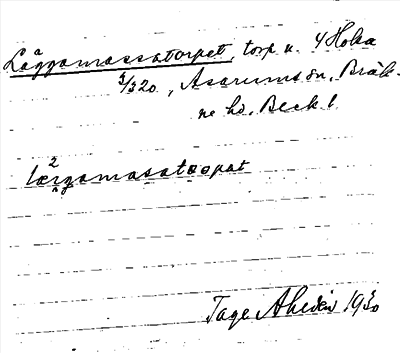 Läggamassatorpet, torp u. 4 Hoka
3/320, Asarums sn, Bräk-
ne hd, Blek. l.
lærgamasatorpat
Tage Ahldén 1930